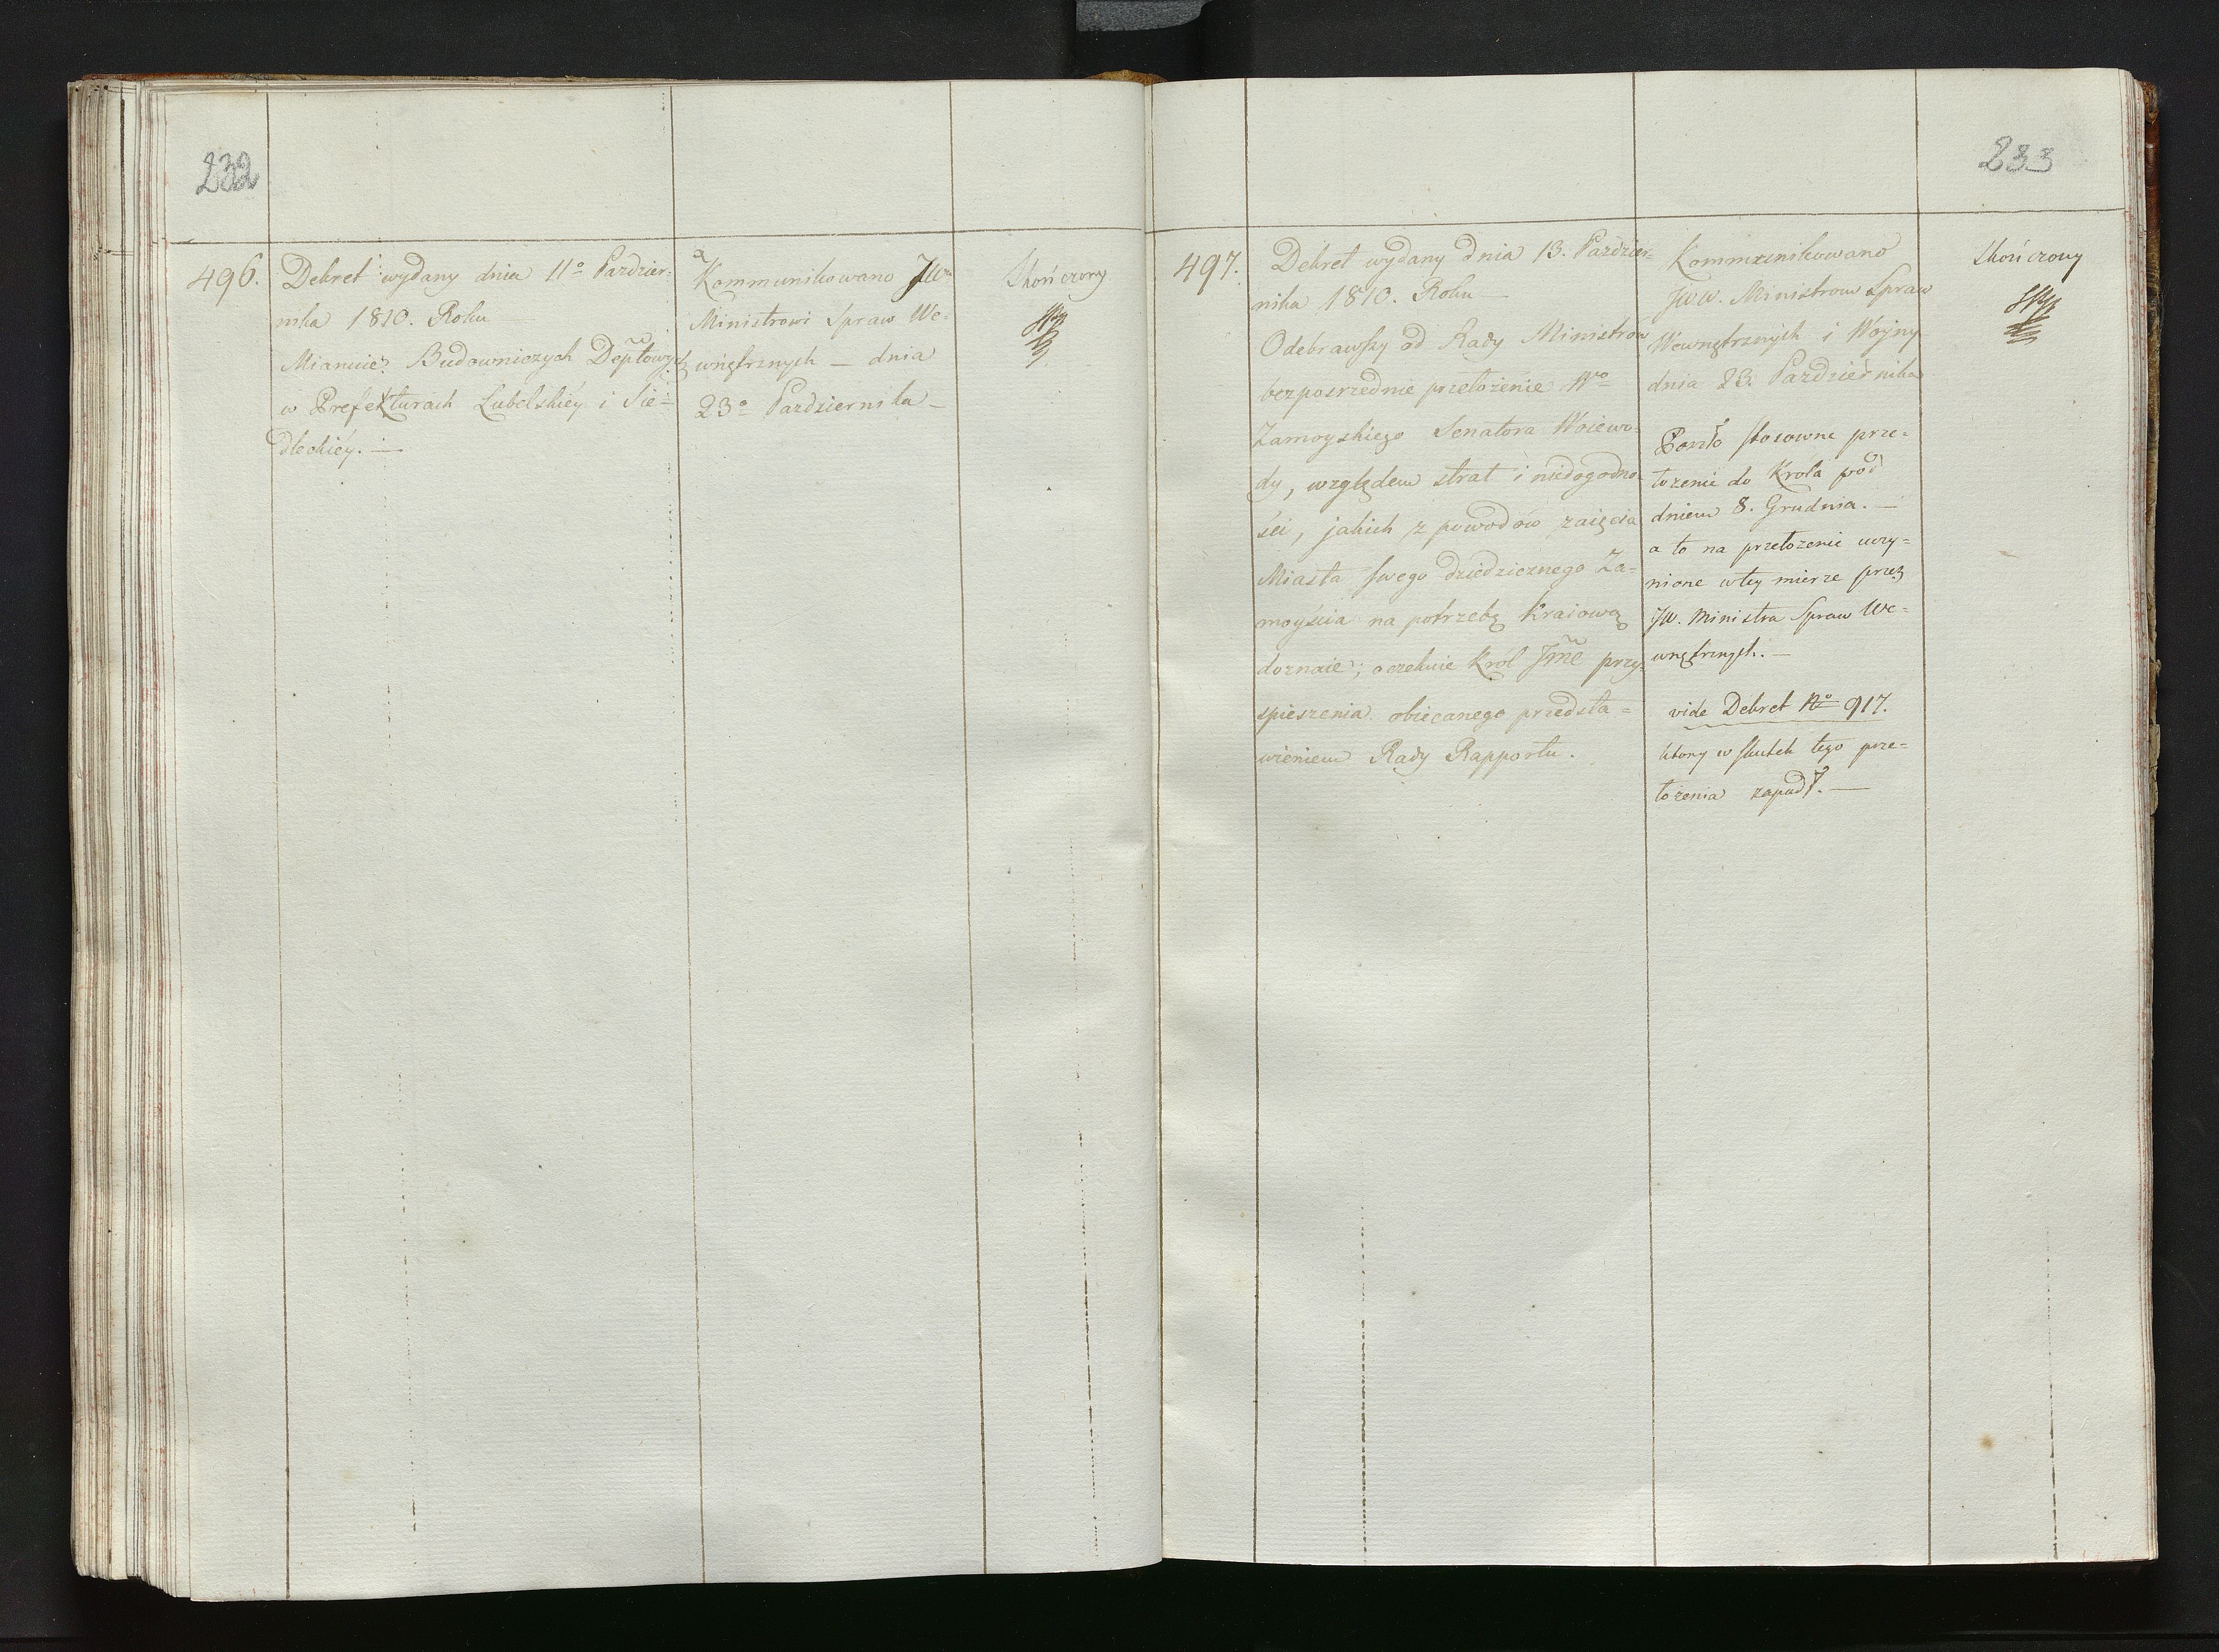 232
496.
Dekret wydany dnia 11º Pazdzier=
nika 1810. Roku —
Mianuie Budowniczych Dep̃towych
w Prefekturach Lubelskiéy i Sie=
dleckiéy. —
Kommunikowano JWu
Ministrowi Spraw We=
wnętrznych — dnia
23º Pazdziernika —
Skończony
233
497.
Dekret wydany dnia 13. Pazdzier=
nika 1810. Roku —
Odebrawszy od Rady Ministrów
bezposrzednie przełożenie Wº
Zamoyskiego Senatora Woiewo=
dy, względem strat i niedogodno=
ści, jakich z powodów zaięcia
Miasta swego dziedzicznego Za=
mościa na potrzebę Kraiową
doznaie; oczekuie Król Jm̃c przy=
spieszenia obiecanego przedsta=
wieniem Rady Rapportu.
Kommunikowano
JWW. Ministrom Spraw
Wewnętrznych i Woyny
dnia 23. Pazdziernika
Poszło stosowne prze=
łozenie do Króla pod
dniem 8. Grudnia. —
a to na przełozenie uczy=
nione w tey mierze przez
JW. Ministra Spraw We=
wnętrznych. —
vide Dekret Nº 917.
ktory w skutek tego prze=
łożenia zapadł. —
Skończony